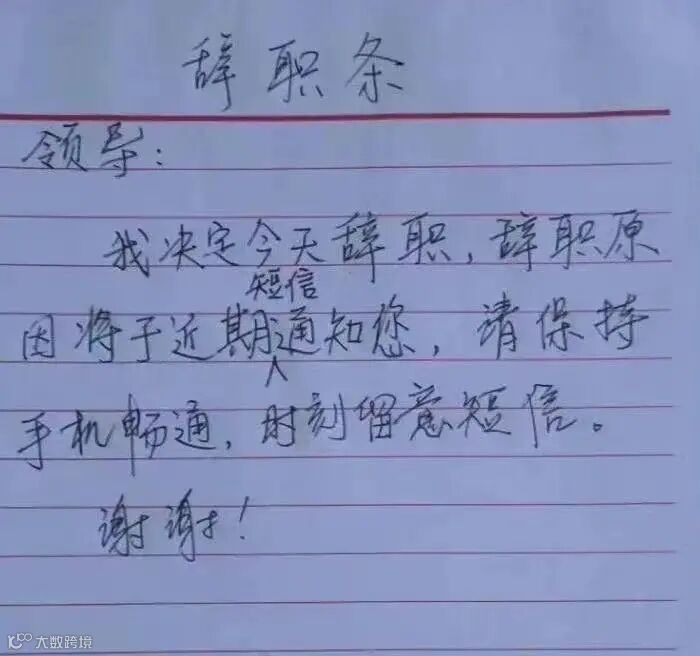 辞职条
领导：
我决定今天辞职，辞职原
因将于近期短信通知您，请保持
手机畅通，时刻留意短信。
谢谢！
大数跨境